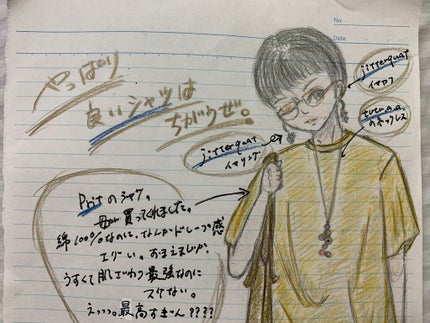 No.
Date
やっぱり
良いシャツは
ちがうぜ。
jitterquat
イヤカフ
jitterquat
イヤリング
のネックレス
Pritのシャツ。
母が買ってくれました。
綿100%なのに、なんかドレープ感
エグい。おまえまじか。
うすくて肌ざわり最強なのに
スケない。
えっっっ。最高すきん????